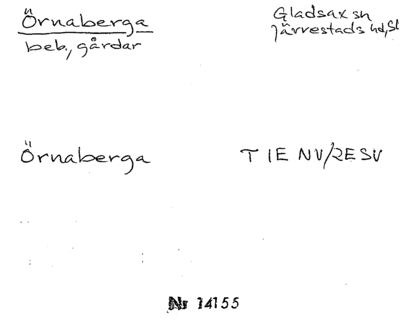 Örnaberga
beb., gårdar
Gladsax sn
Järrestads hd, Sk
Örnaberga
T 1E NV/2E SV
Nr 14155